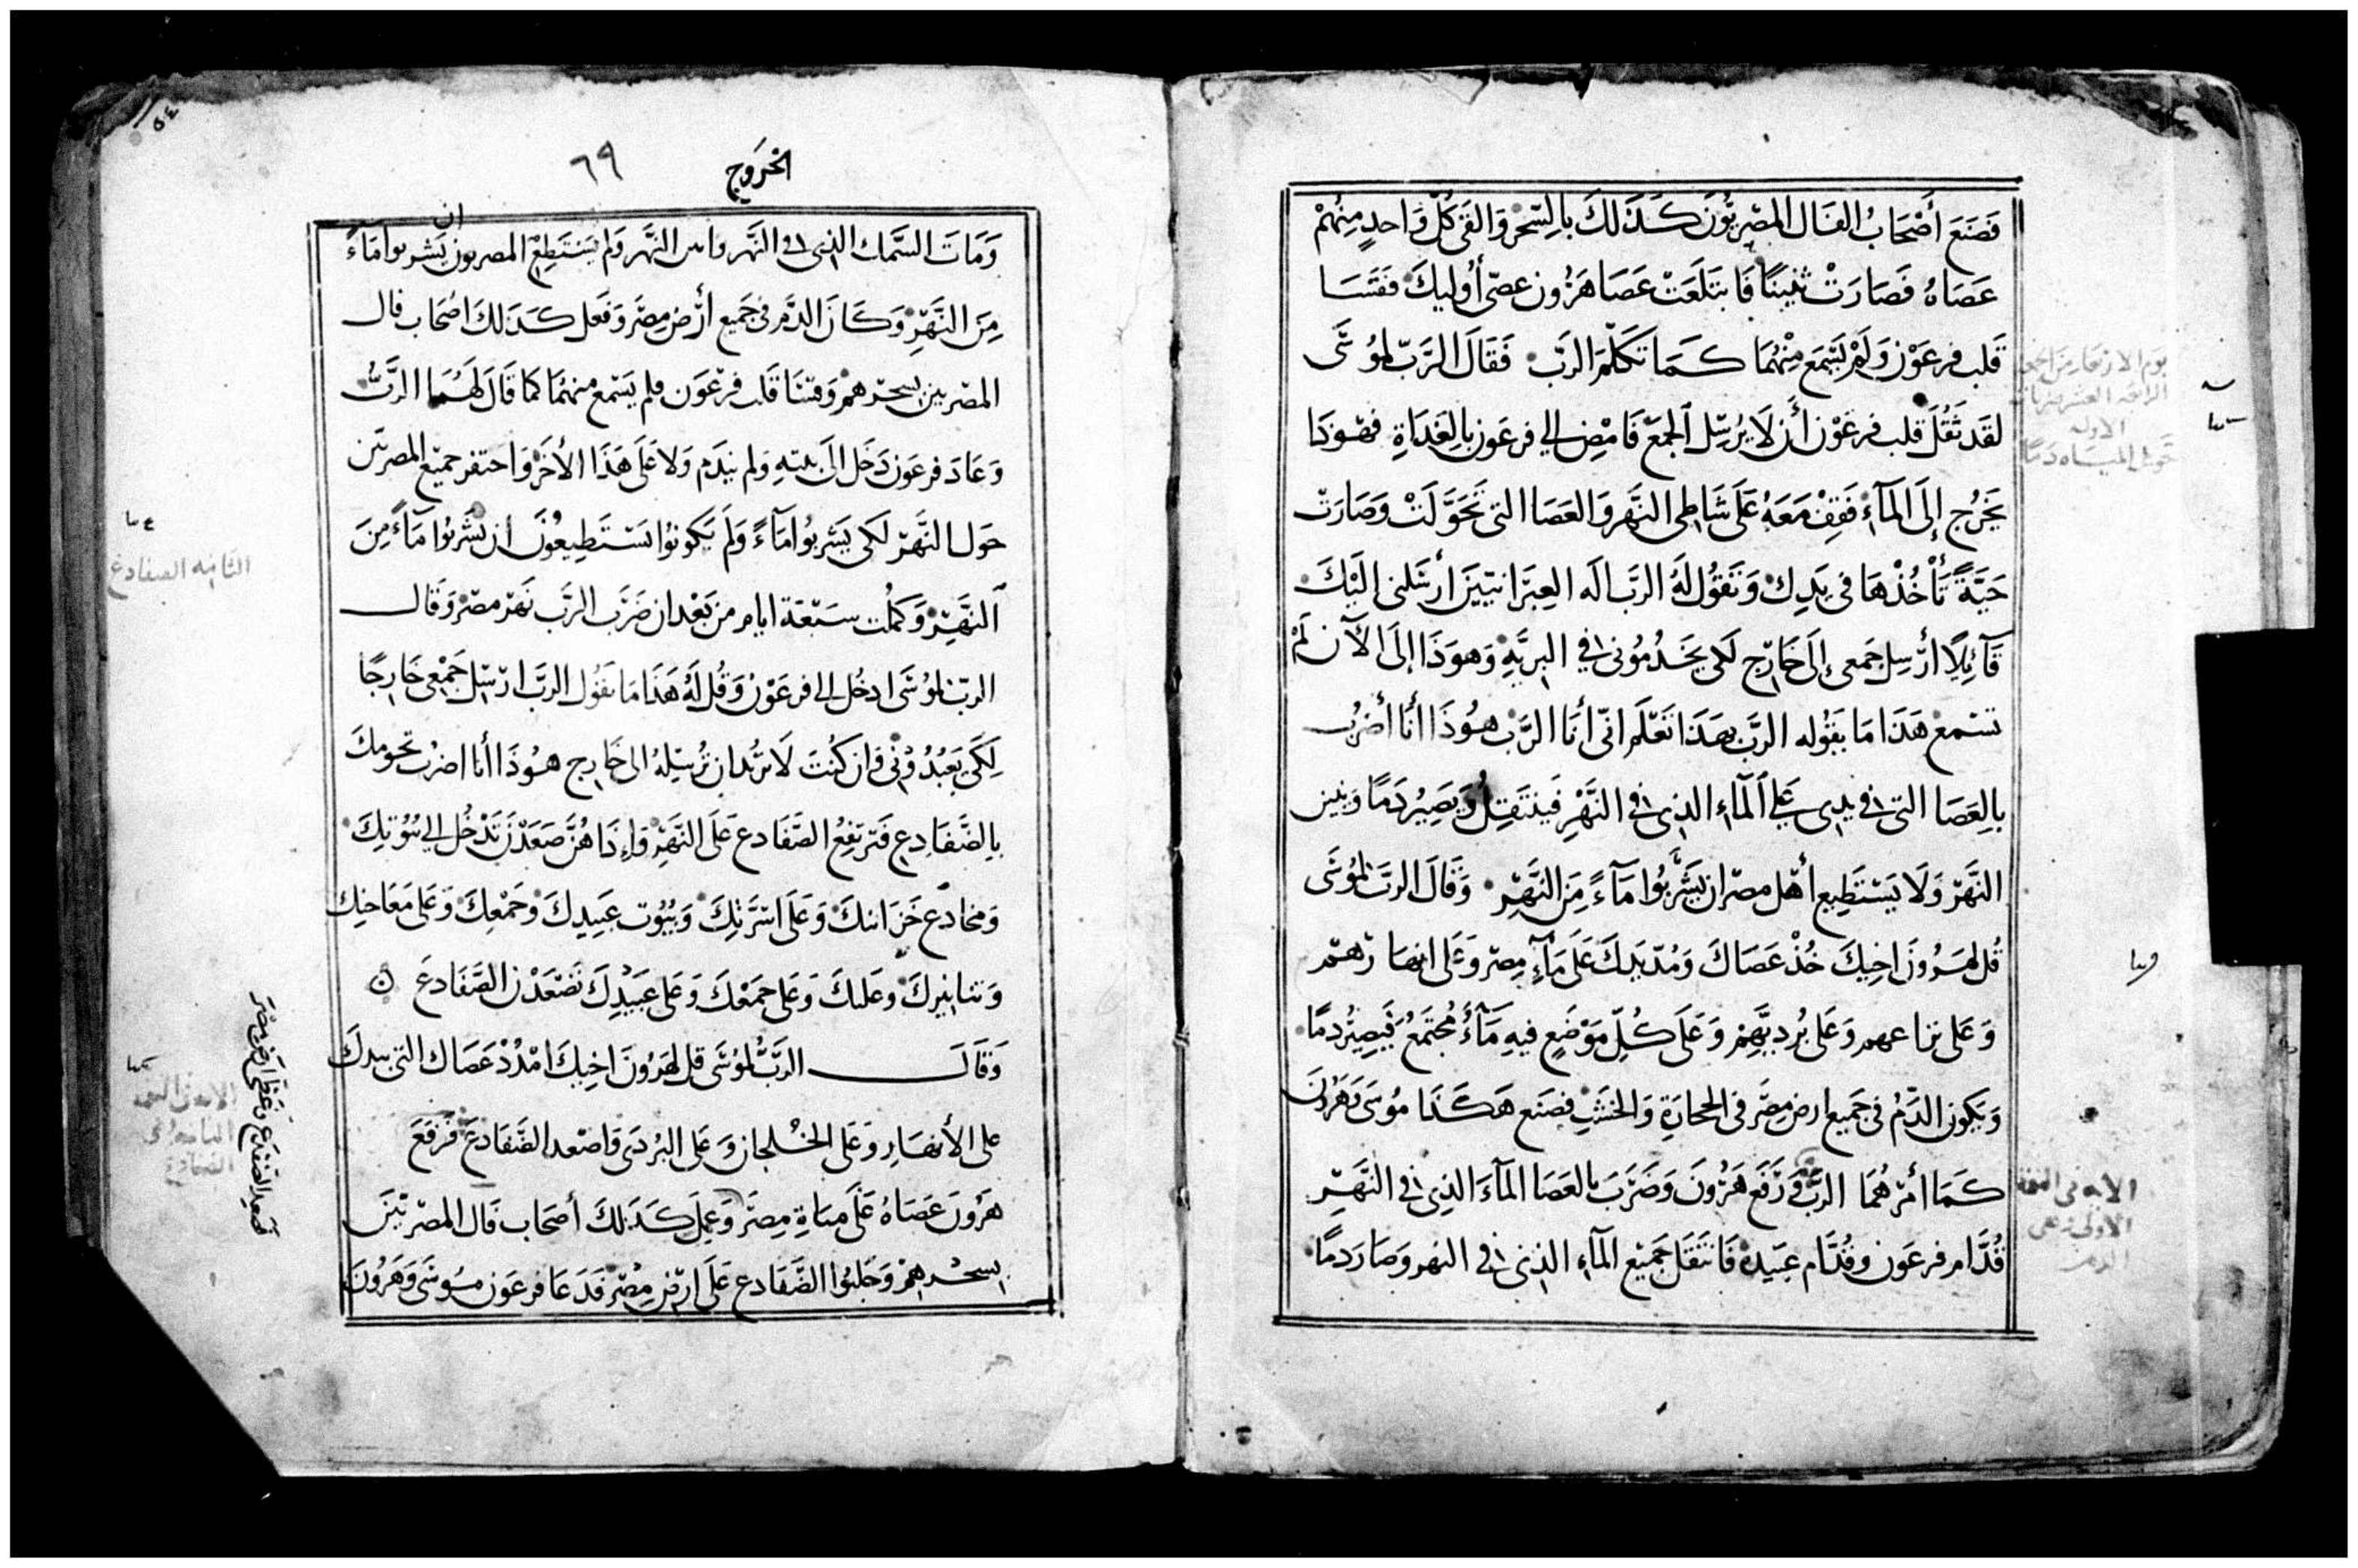 فَصَنَعَ أَصْحَابُ الفَال المصْرِيُّونَ كَذَلكَ بالسِّحْرِ وَالقَى كُلّ وَاحدٍ مِنهُمْ
عَصَاهُ فَصَارَتْ تنينًا فَابتَلَعَتْ عَصَا هَرُون عصىّ أُوليكَ فَقَسَا
قَلب فرعَوْن وَلَمْ يَسْمَع مِنْهُمَا كَمَا تَكَلّمَ الرَبّ فَقَالَ الرَبّ لمُوسَى
لقَد ثَقُلَ قلب فرعَوْن أَن لَا يُرسِل الجمْعَ فَامْضِ الي فرعَون بالِغَدَاةِ فهُوَذَا
يَخرُج إلَى المآءِ فَقِفْ مَعَهُ عَلَى شَاطِى النهَر وَالعَصَا التى تَحَوَّلَتْ وَصَارَتْ
حَيَّةً تَأْخُذْهَا في يَدِكَ وَتَقُولُ لَهُ الرَبّ الَه العِبرَانيّينَ أرسَلنى الَيْكَ
قَآئِلاً أرْسِل جَمعى إلَى خَارِج لَكى يخَدُمُونى في البريَّةِ وَهوَذَا إلَى الآن لَمْ
تسْمع هَذَا مَا يقُوله الرَبّ بهَذَا تَعْلَم انّى أنَا الرَبّ هوُذَا أنَا أضْربُ
بالِعَصَا التى في يدى عَلي المآءِ الذِى في النَهْرِ فَيَنتَقِلُ وَيَصِيرُ دَمًا وَينتن
النهَرْ وَلَا يَسْتَطِيع أهْل مصْر ان يَشْرَبُوا مَآءً مِنَ النَهَرِ وَقَالَ الرَبّ لمُوسَى
قُل لهَرُونَ اخِيكَ خُذْ عَصَاكَ وَمُدّ يَدِكَ عَلَى مَآءِ مِصْر وَعَلى انهَارهمْ
وَعَلى تراعهم وَعَلى بُرديّهِمْ وَعَلَى كُلّ مَوْضَعٍ فيهِ مَآءُ مُجْتَمَعُ فَيَصِيرُ دمًا
وَيَكون الدَمُ في جَميع ارض مِصْر في الحجَارَةِ وَالخشَبِ فصَنَع هَكَذَا مُوسَى وَهَرُونَ
كَمَا أمَرَهُمَا الرَبّ وَرَفَعَ هَرُونَ وَضَرَبَ بالعَصَا المآءَ الذِى في النَهْرِ
قُدَّام فرعَون وقُدَّام عبَيدِهْ فَانتَقَل جَميْع المآءِ الذِى في النهر وَصَارَ دمًا
الاولي
تحويل المياه دمًا
الخرُوج
٦٩
٥٤
وَمَاتَ السَّمَك الذِى في النَّهر وانتن النَّهر وَلم يَسْتَطِعْ المصريون ان يَشربوا مَاءً
مِنَ النَّهْرِ وَكَانَ الدَّم فى جَميع أرْض مِصْرَ وَفَعل كَذَلكَ اصْحَاب فال
المصْريين بسحرهم وَقسَا قَلب فرْعَوَن فلم يَسْمع منهمَا كمَا قَالَ لَهُمَا الرَبُّ
وَعَادَ فرعَون دَخَل الَى بيته وَلم نيدَم وَلَا عَلَى هَذَا الأَخَر وَاحتفر جَميْع المصريين
حَول النَهَر لكَى يَشرَبُوا مَآءً وَلَم يَكونوُا يَسْتَطِيعُونَ أن يَشْرَبُوا مَآءً مِنَ
النَهَرِ وَكَمُلت سَبْعَة ايام من بَعْد ان ضَرَب الرَبّ نَهَر مصْر وَقَال
الربّ لمُوسَى ادخُل الي فرعَوْن وَقُل لَهُ هَذَا مَا يقُول الرَبّ ارْسِل جَمعى خَارِجًا
لِكَى يَعبُدُونى وَان كُنْتَ لَا تريُد ان تُرسِلهُ الى خَارِج هوُذَا أنا اضرْب تخومكَ
بالِضَّفَادِعِ فَترتفِعُ الضّفَادع عَلَى النَهَرِ وَإذَا هُنَّ صَعَدْنَ تَدْخُل الي بُيُوتِكَ
وَمخادع خَزَائنكَ وَعَلَى اسَرَّتِكَ وَبُيُوت عبِيدِكَ وَجَمْعِكَ وَعَلى مَعَاجِنِك
وَتنانيرِكَ وعَليكَ وَعَلى جمَعْكَ وَعَلى عَبيْدِكَ تَصْعَدْن الضَفَادعَ
وَقَالَ الرَبُّ لمُوسَى قل لهَرُونَ اخيِكَ امْدُدْ عَصَاك التى بيدكَ
على الأَنهَار وَعَلَى الخُلجان وَعَلى البُردَى وَاصْعد الضَفَادعَ فَرَفعَ
هَرُونَ عَصَاهُ عَلَى مياه مِصْرَ وَعمِلَ كَذَلكَ أصْحَاب فَال المصْريّينَ
بسحرهِمْ وَجَلبُوا الضَّفَادع عَلَى ارْض مِصْرَ فَدَعَا فرعَون مُوسَى وَهَرُونَ
الثانيه الضفادع
فصعد الضفادع وغطى ارض مصر